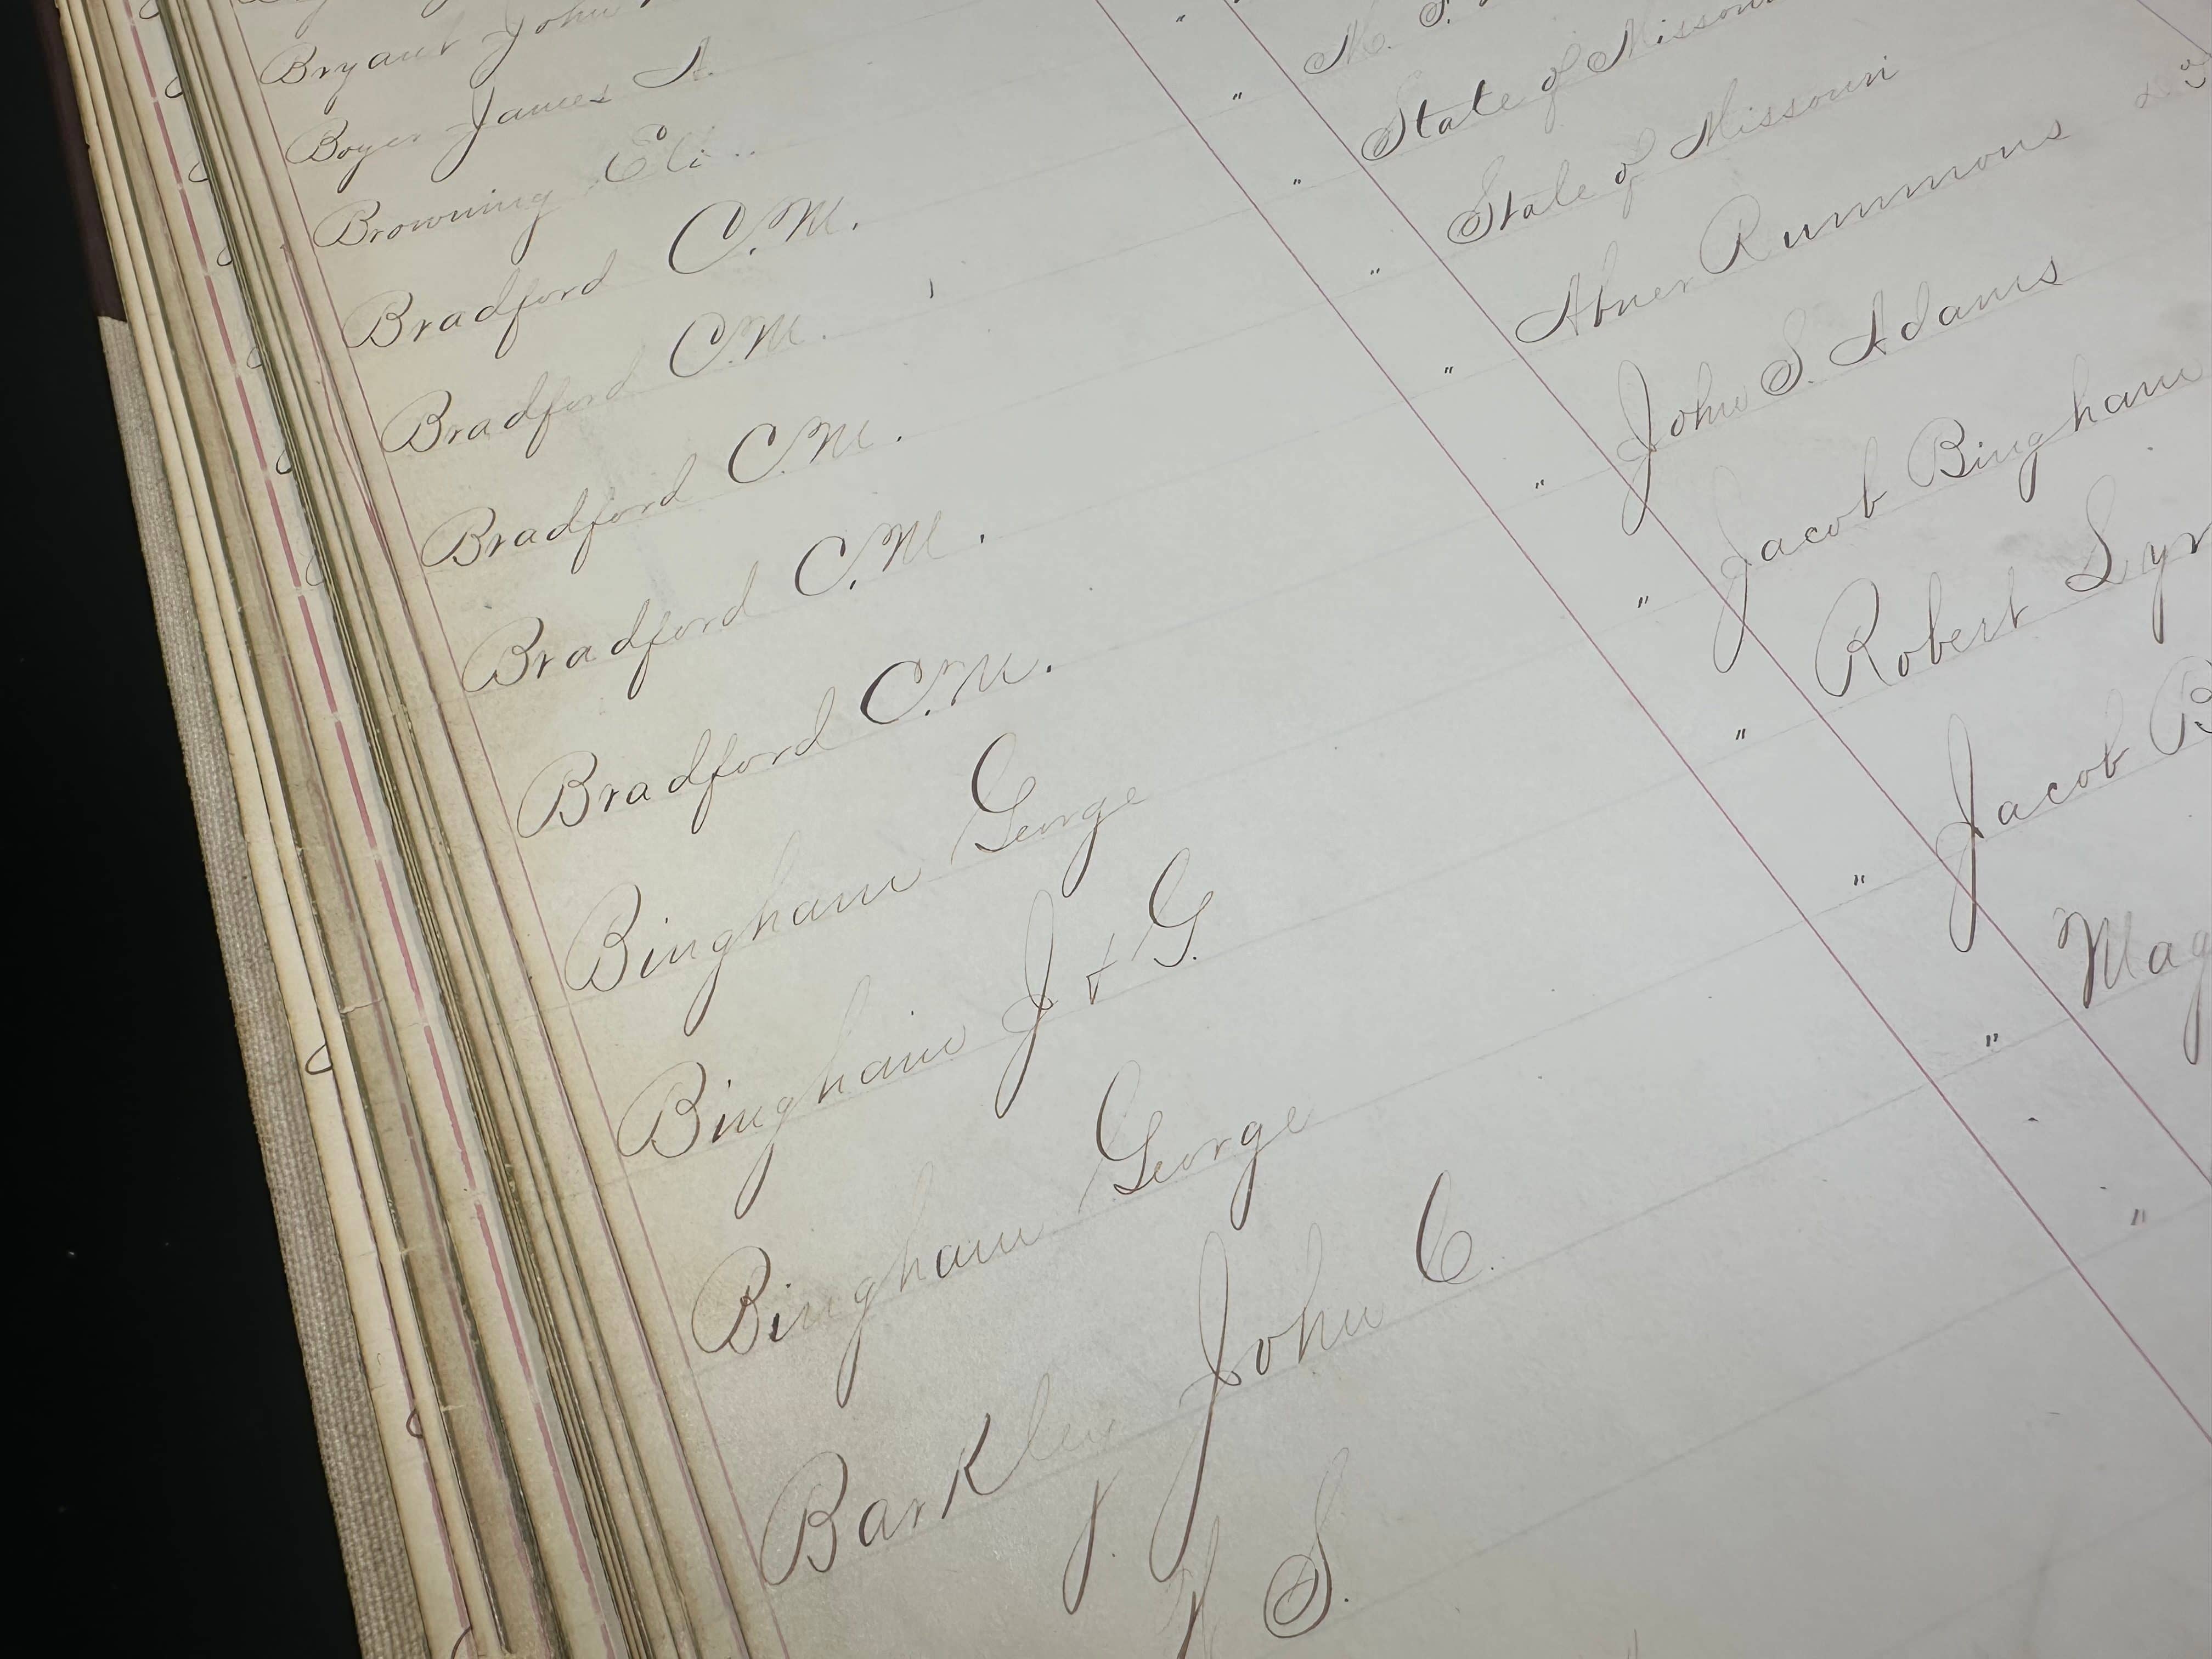 Bryant John
Boyer James A.
Browning Eli "
Bradford C. M. " M. S.
Bradford C. M. " State of Missouri
Bradford C. M. " State of Missouri
Bradford C. M. " Abner Rummons
Bradford C. M. " John S. Adams
Bingham George " Jacob Bingham
Bingham J & G. " Robert Lyn
Bingham George " Jacob B
Barkley John C. " Mag
S. "